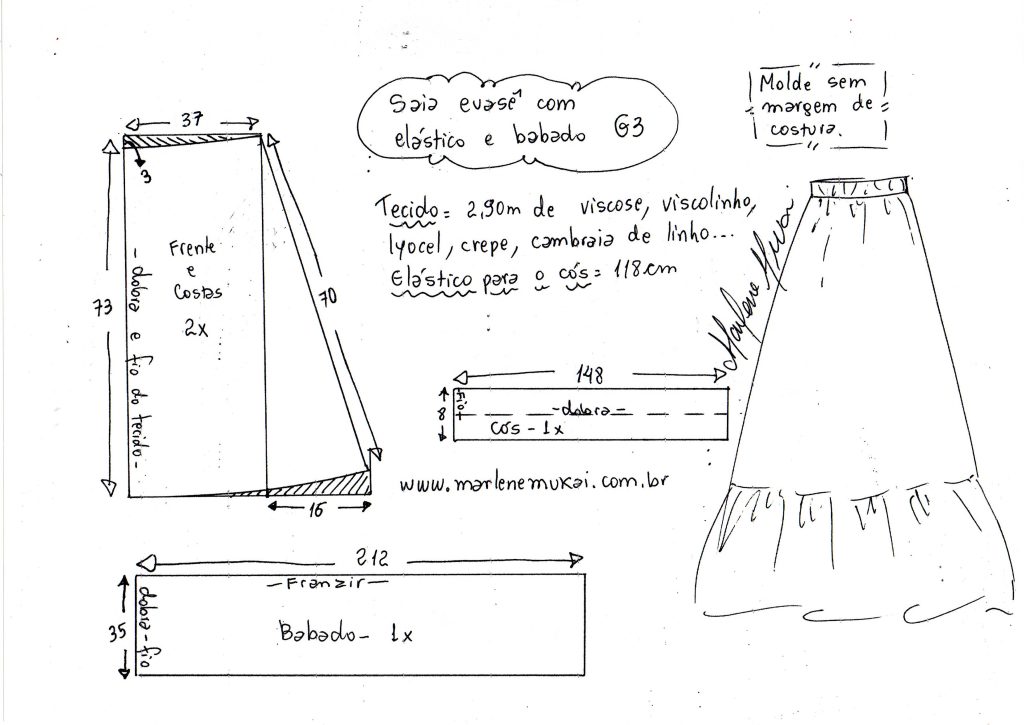 Saia evasê com
elástico e babado G3
Molde sem
margem de
costura.
37
3
73
- dobra e fio do tecido -
Frente
e
Costas
2x
70
16
Tecido = 2,90m de viscose, viscolinho,
lyocel, crepe, cambraia de linho...
Elástico para o cós = 118 cm
Marlene Mukai
148
8
Fio
- dobra -
cós - 1x
www.marlenemukai.com.br
212
- Franzir -
35
dobra - fio
Babado - 1x